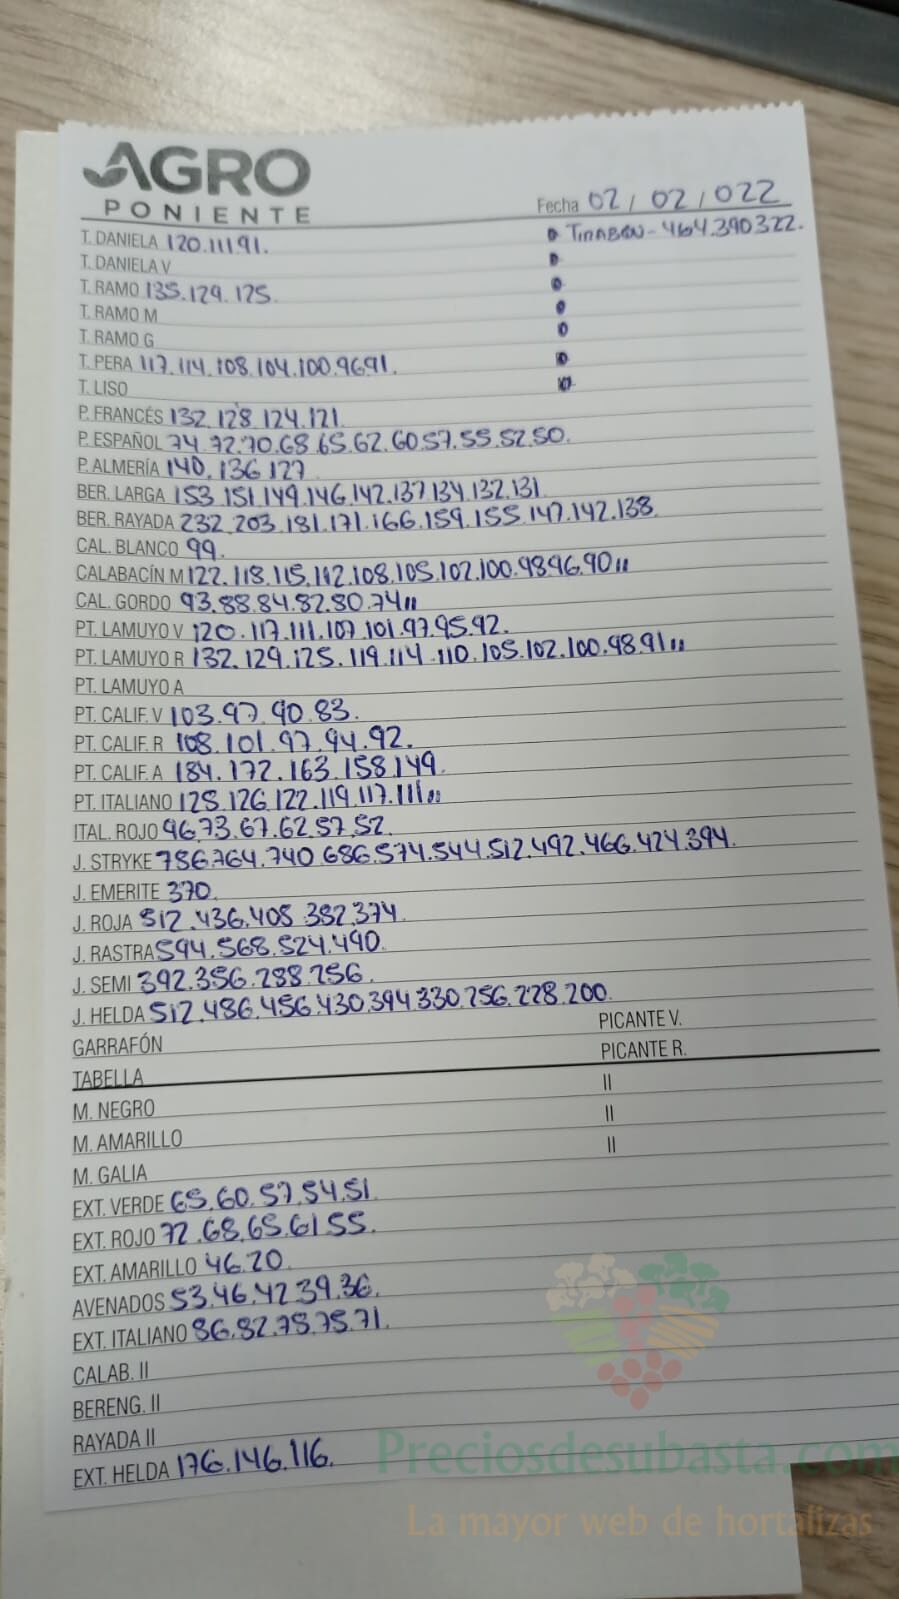 AGRO
PONIENTE
Fecha 02/02/022
T. DANIELA 120.111.91.
TIRABEQ-464.390.322.
T. DANELA V
T. RAMO 135.129.125.
T. RAMO M
T. RAMO G
T. PERA 117.114.108.104.100.96.91.
T. LISO
P. FRANCÉS 132.128.124.121.
P. ESPAÑOL 74.72.70.68.65.62.60.57.55.52.50.
P. ALMERÍA 140.136.127
BER. LARGA 153.151.149.146.142.137.134.132.131.
BER. RAYADA 232.203.181.171.166.159.155.147.142.138.
CAL. BLANCO 99.
CALABACÍN M 122.118.115.112.108.105.102.100.98.96.90 "
CAL. GORDO 93.88.84.82.80.74 "
PT. LAMUYO V 120.117.111.107.101.97.95.92.
PT. LAMUYO R 132.129.125.119.114.110.105.102.100.98.91 "
PT. LAMUYO A
PT. CALIF. V 103.97.90.83.
PT. CALIF. R 108.101.97.94.92.
PT. CALIF. A 184.172.163.158.149.
PT. ITALIANO 128.126.122.119.117.111 "
ITAL. ROJO 96.73.67.62.57.52.
J. STRYKE 786.764.740.686.574.544.512.492.466.424.394.
J. EMERITE 370.
J. ROJA 512.436.408.382.374.
J. RASTRA 594.568.524.490.
J. SEMI 392.356.288.256.
J. HELDA 512.486.456.430.394.330.256.228.200.
GARRAFÓN
PICANTE V.
TABELLA
PICANTE R.
M. NEGRO
II
M. AMARILLO
II
M. GALIA
II
EXT. VERDE 65.60.57.54.51.
EXT. ROJO 72.68.65.61.55.
EXT. AMARILLO 46.20.
AVENADOS 53.46.42.39.36.
EXT. ITALIANO 86.82.78.75.71.
CALAB. II
BERENG. II
RAYADA II
EXT. HELDA 176.146.116.
Preciosdesubasta.com
La mayor web de hortalizas